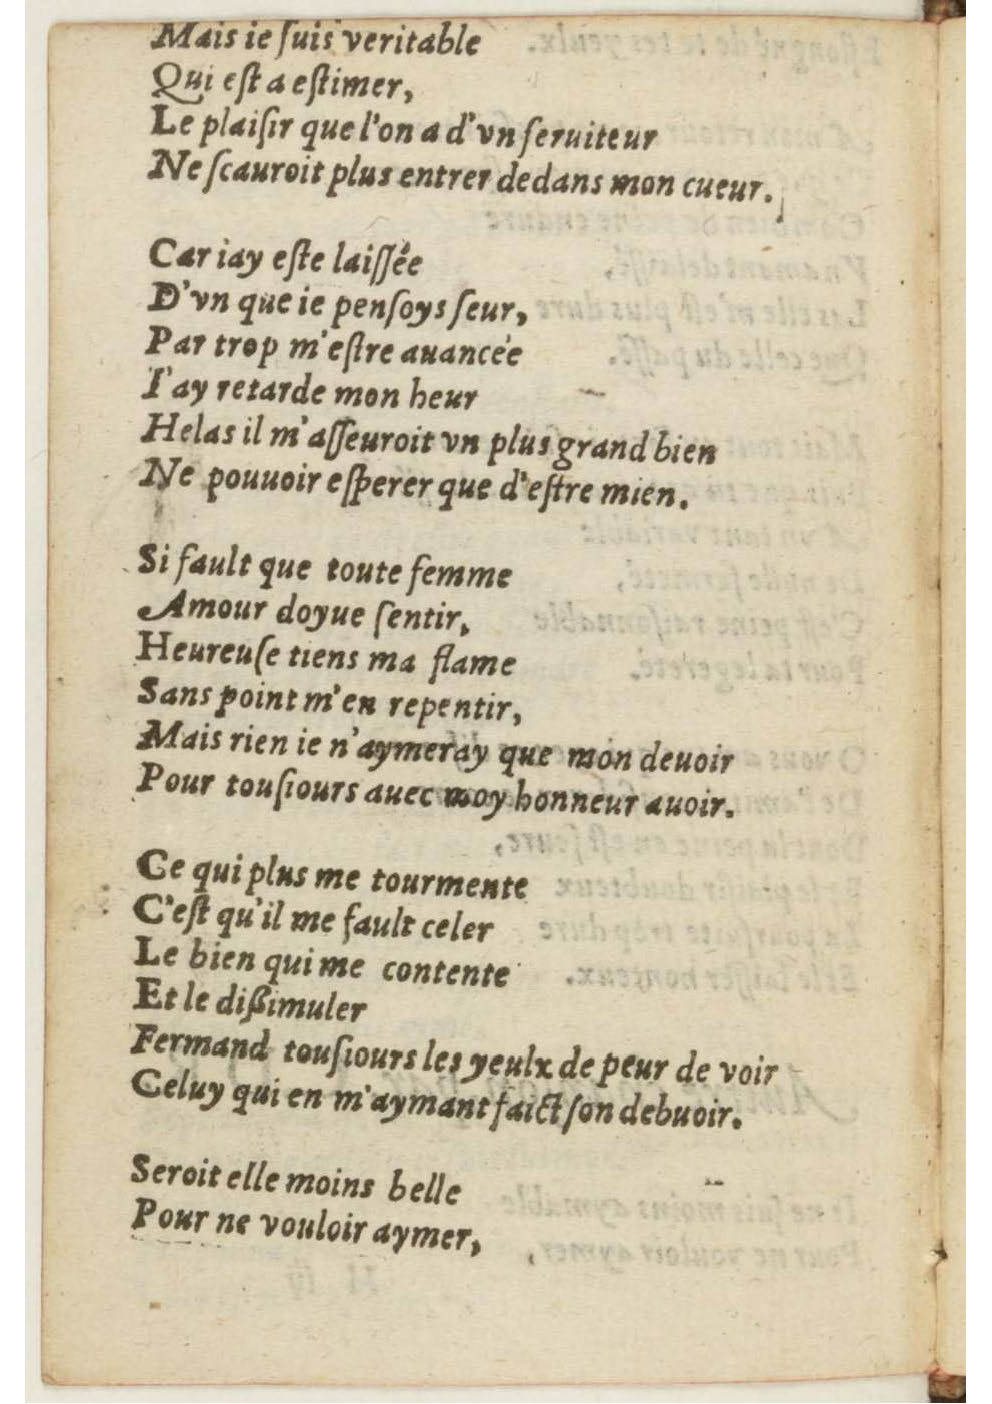 Mais ie ſuis veritable
Qui eſt a eſtimer,
Le plaiſir que l'on a d'vn ſeruiteur
Ne ſcauroit plus entrer dedans mon cueur.
Car iay eſte laiſſée
D'vn que ie penſoys ſeur,
Par trop m'eſtre auancée
I'ay retarde mon heur
Helas il m'aſſeuroit vn plus grand bien
Ne pouuoir eſperer que d'eſtre mien.
Si fault que toute femme
Amour doyue ſentir,
Heureuſe tiens ma flame
Sans point m'en repentir,
Mais rien ie n'aymeray que mon deuoir
Pour touſiours auec moy honneur auoir.
Ce qui plus me tourmente
C'eſt qu'il me fault celer
Le bien qui me contente
Et le dißimuler
Fermand touſiours les yeulx de peur de voir
Celuy qui en m'aymant faict ſon debuoir.
Seroit elle moins belle
Pour ne vouloir aymer,